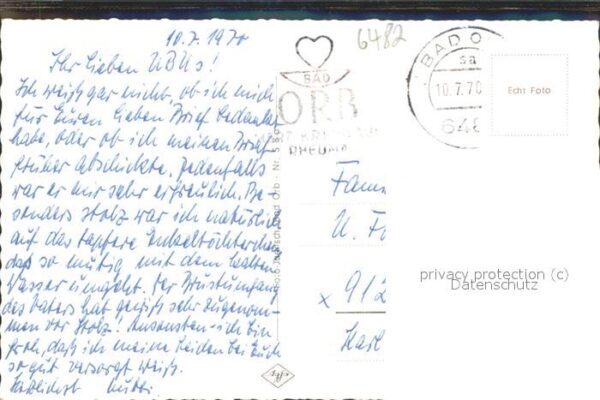 10.7.1970
Ihr lieben UBUs!
Ich weiß gar nicht ob ich mich
für Euren lieben Brief bedankt
habe, oder ob ich meinen Brief
früher abschickte. Jedenfalls
war er mir sehr erfreulich. Be-
sonders stolz war ich natürlich
auf das tapfere Enkeltöchterchen
daß so mutig mit dem kalten
Wasser umgeht. Der Brustumfang
des Vaters hat gewiß sehr zugenom-
men vor Stolz! Ansonsten ich bin
froh, daß ich meine Leiden bei Euch
so gut versorgt weiß.
Herzlichst Mutti
6482
BAD
ORB
RHEUMA
BAD O
10.7.70
648
Echt Foto
Fam
U. Fo
x 912
Karl
privacy protection (c)
Datenschutz